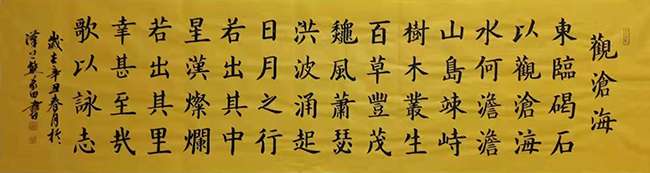 觀滄海
東臨碣石
以觀滄海
水何澹澹
山島竦峙
樹木叢生
百草豐茂
龝風蕭瑟
洪波涌起
日月之行
若出其中
星漢燦爛
若出其里
幸甚至哉
歌以詠志
歲在辛丑春月於